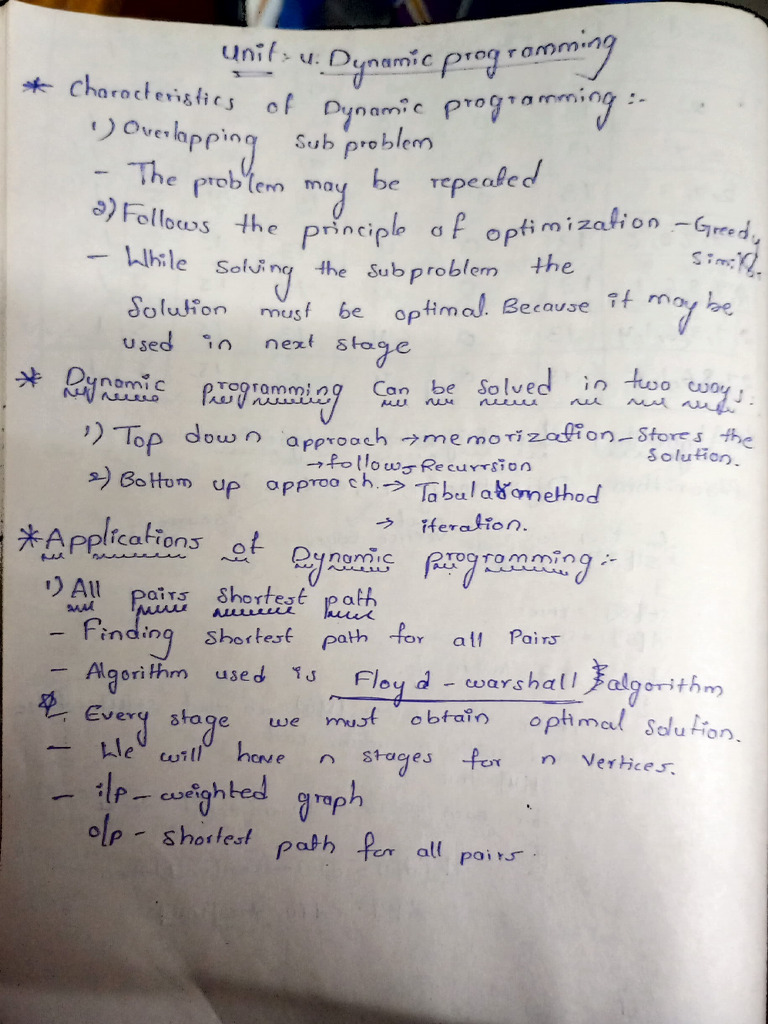 Unit: 4. Dynamic programming
* Characteristics of Dynamic programming :-
1) Overlapping Sub problem
- The problem may be repeated
2) Follows the principle of optimization - Greedy
- While solving the subproblem the
Solution must be optimal. Because it may be
used in next stage
* Dynamic programming Can be solved in two ways.
1) Top down approach → memorization - Stores the
solution.
→ follows Recurrsion
2) Bottom up approach. → method
→ iteration.
* Applications of Dynamic programming :-
1) All pairs shortest path
- Finding shortest path for all Pairs
- Algorithm used is Floyd - warshall algorithm
Every stage we must obtain optimal solution.
- We will have n stages for n vertices.
- i/p - weighted graph
o/p - shortest path for all pairs.